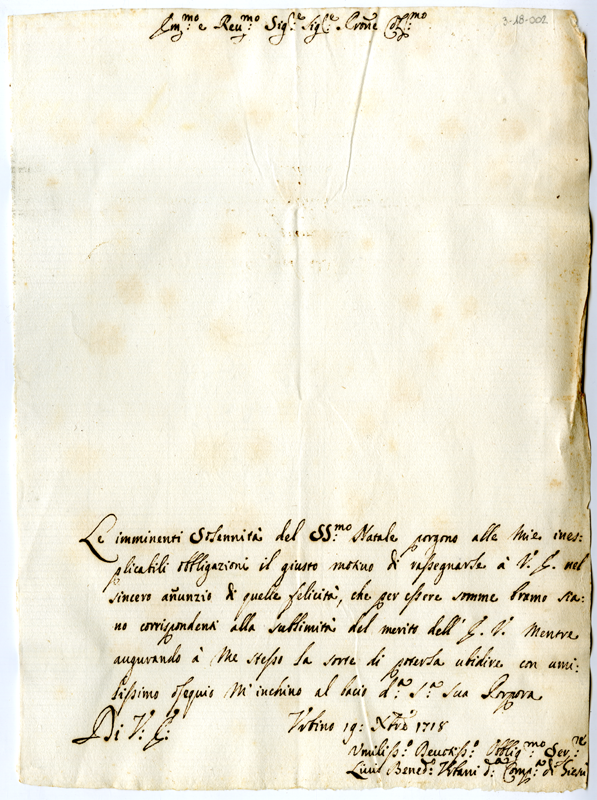 3-18-002
Em.mo e Reu.mo Sig.r Sig.r Prone Col.mo
Le imminenti Solennità del SS.mo Natale porgono alle mie ines:
plicabili obbligazioni il giusto motiuo di rassegnarle à V. E. nel
sincero añunzio di quelle felicità, che per essere somme bramo sia:
no corrispondenti alla sublimità del merito dell' E. V. Mentre
augurando à me stesso la sorte di poterla ubidire con umi:
lissimo osequio m'inchino al bacio d.a S.a sua Porpora
Di V. E.
Urbino 19: Xbre 1718
Umiliss.o Deuotiss.o Obblig.mo Ser.re
Bened. Urbani d.a Comp.a di Giesù